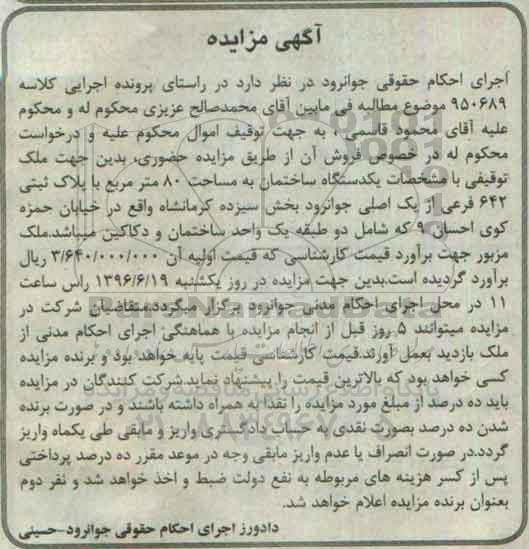 آگهی مزایده
اجرای احکام حقوقی جوانرود در نظر دارد در راستای پرونده اجرایی کلاسه
۹۵۰۶۸۹ موضوع مطالبه فی مابین آقای محمدصالح عزیزی محکوم له و محکوم
علیه آقای محمود قاسمی ، به جهت توقیف اموال محکوم علیه و درخواست
محکوم له در خصوص فروش آن از طریق مزایده حضوری، بدین جهت ملک
توقیفی با مشخصات یکدستگاه ساختمان به مساحت ۸۰ متر مربع با پلاک ثبتی
۶۴۲ فرعی از یک اصلی جوانرود بخش سیزده کرمانشاه واقع در خیابان حمزه
کوی احسان ۹ که شامل دو طبقه یک واحد ساختمان و دکاکین میباشد.ملک
مزبور جهت برآورد قیمت کارشناسی که قیمت اولیه آن ۳/۶۴۰/۰۰۰/۰۰۰ ریال
برآورد گردیده است.بدین جهت مزایده در روز یکشنبه ۱۳۹۶/۶/۱۹ راس ساعت
۱۱ در محل اجرای احکام مدنی جوانرود برگزار میگردد.متقاضیان شرکت در
مزایده میتوانند ۵ روز قبل از انجام مزایده با هماهنگی اجرای احکام مدنی از
ملک بازدید بعمل آورند.قیمت کارشناسی قیمت پایه خواهد بود و برنده مزایده
کسی خواهد بود که بالاترین قیمت را پیشنهاد نماید.شرکت کنندگان در مزایده
باید ده درصد از مبلغ مورد مزایده را نقدا به همراه داشته باشند و در صورت برنده
شدن ده درصد بصورت نقدی به حساب دادگستری واریز و مابقی طی یکماه واریز
گردد.در صورت انصراف یا عدم واریز مابقی وجه در موعد مقرر ده درصد پرداختی
پس از کسر هزینه های مربوطه به نفع دولت ضبط و اخذ خواهد شد و نفر دوم
بعنوان برنده مزایده اعلام خواهد شد.
دادورز اجرای احکام حقوقی جوانرود-حسینی